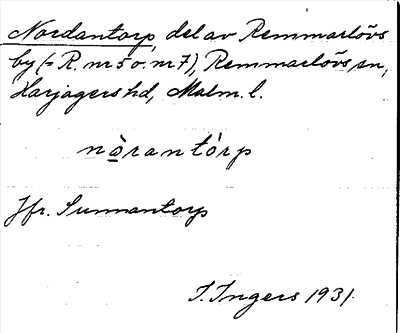 Nordantorp, del av Remmarlövs
by (= R. nr 5 o. nr 7), Remmarlövs sn,
Harjagers hd, Malm. l.
nòrantórp
Jfr. Sunnantorp
I. Ingers 1931.